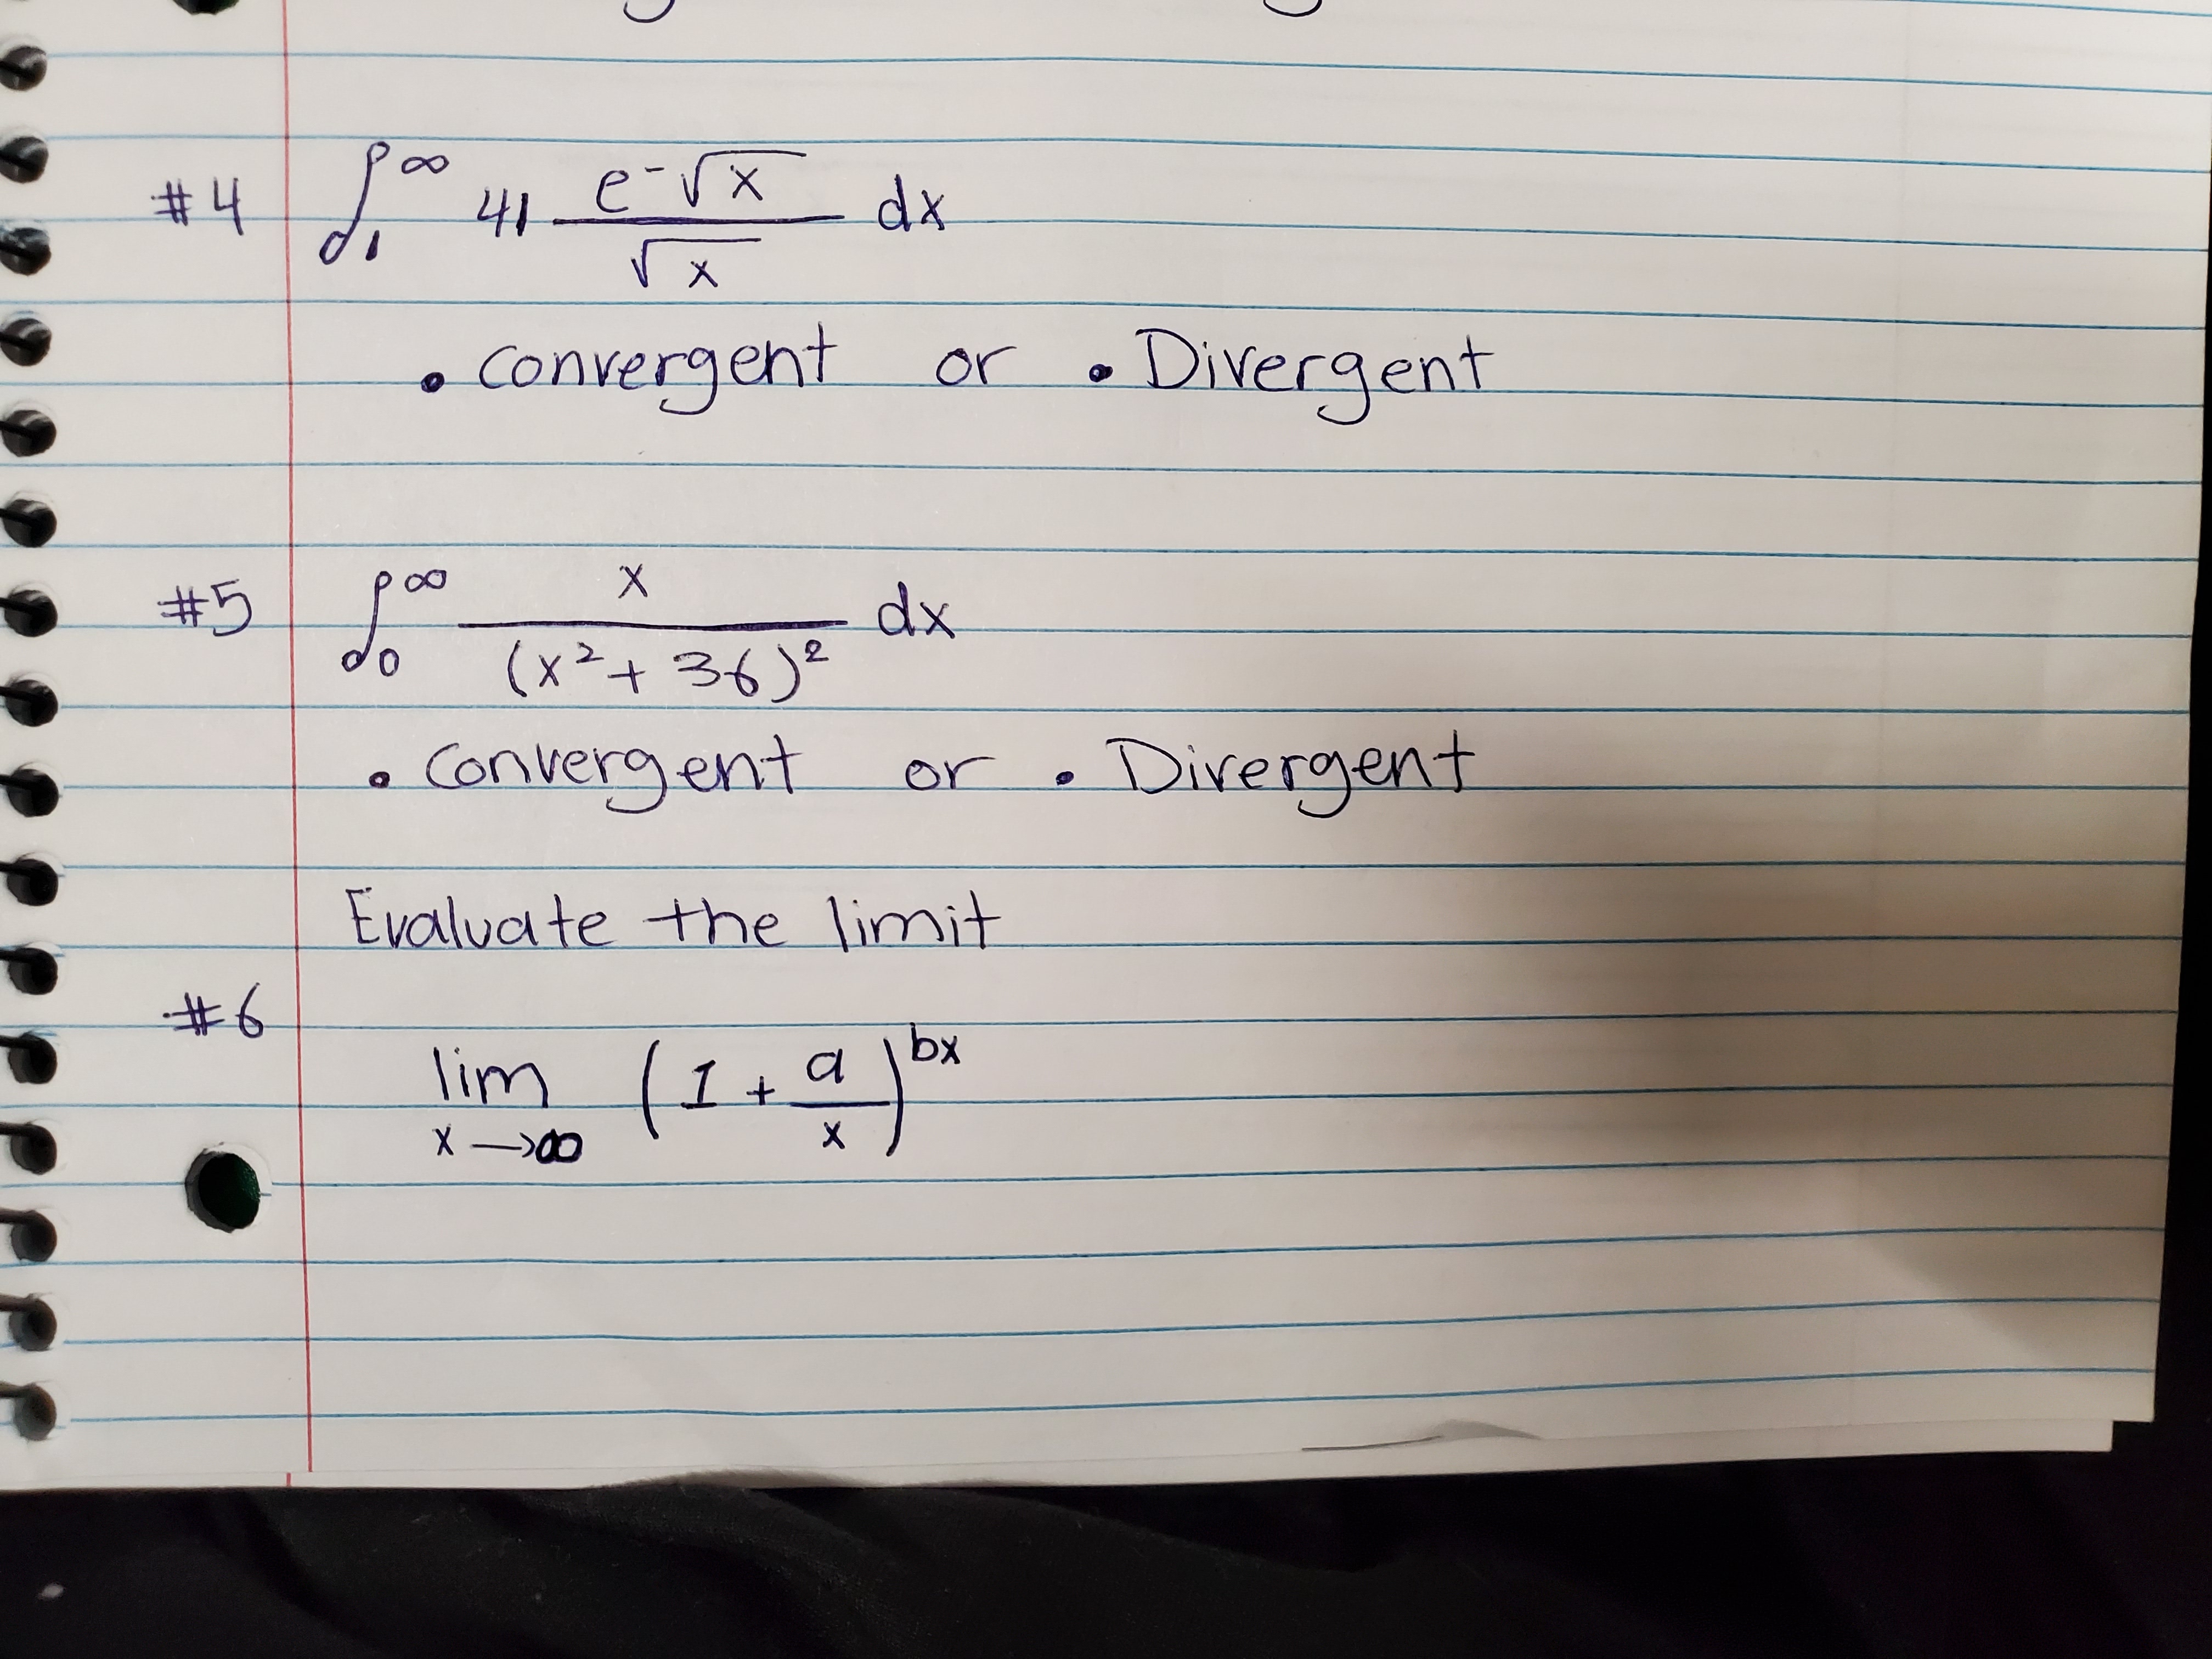 #4 ∫₁^∞ 41 e^-√x / √x dx
• Convergent or • Divergent
#5 ∫₀^∞ x / (x² + 36)² dx
• Convergent or • Divergent
Evaluate the limit
#6
lim x→∞ (1 + a/x)^bx